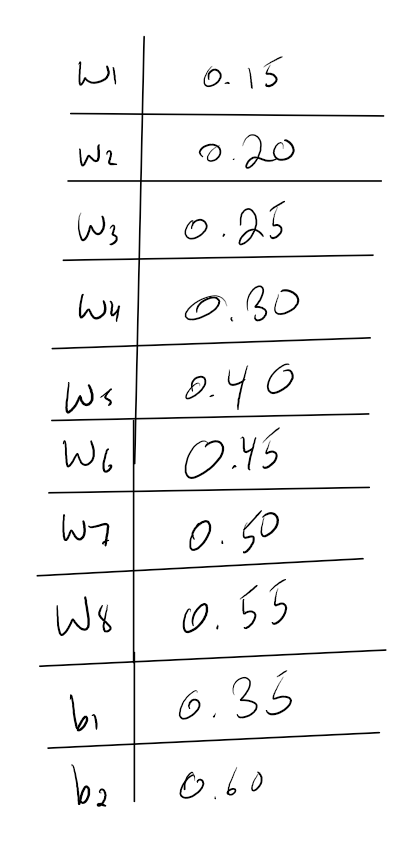 w1 0.15
w2 0.20
w3 0.25
w4 0.30
w5 0.40
w6 0.45
w7 0.50
w8 0.55
b1 0.35
b2 0.60